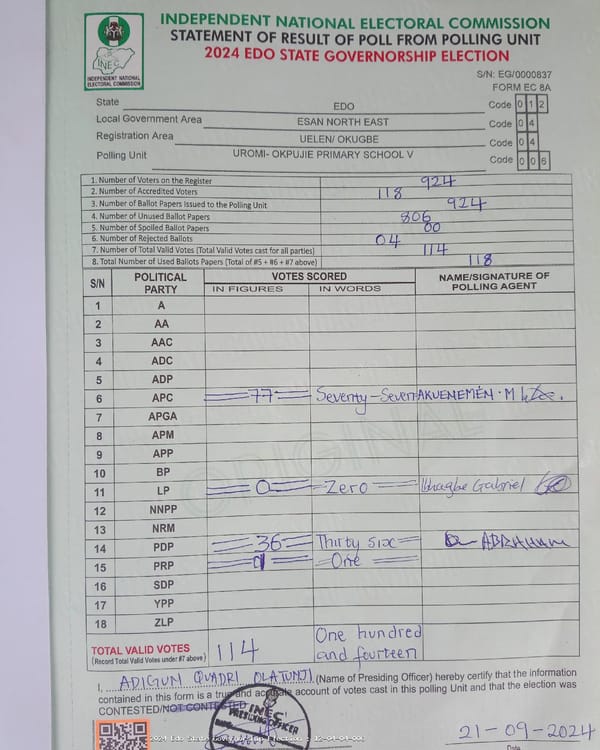 INDEPENDENT NATIONAL ELECTORAL COMMISSION
STATEMENT OF RESULT OF POLL FROM POLLING UNIT
2024 EDO STATE GOVERNORSHIP ELECTION
INEC
INDEPENDENT NATIONAL
ELECTORAL COMMISSION
S/N: EG/0000837
FORM EC 8A
State EDO Code 0 1 2
Local Government Area ESAN NORTH EAST Code 0 4
Registration Area UELEN/ OKUGBE Code 0 4
Polling Unit UROMI- OKPUJIE PRIMARY SCHOOL V Code 0 0 6
1. Number of Voters on the Register 924
2. Number of Accredited Voters 118
3. Number of Ballot Papers Issued to the Polling Unit 924
4. Number of Unused Ballot Papers 806
5. Number of Spoiled Ballot Papers 00
6. Number of Rejected Ballots 04
7. Number of Total Valid Votes (Total Valid Votes cast for all parties) 114
8. Total Number of Used Ballots Papers (Total of #5 + #6 + #7 above) 118
S/N POLITICAL PARTY VOTES SCORED NAME/SIGNATURE OF POLLING AGENT
IN FIGURES IN WORDS
1 A
2 AA
3 AAC
4 ADC
5 ADP
6 APC 77 Seventy-Seven AKUENEMEN. M
7 APGA
8 APM
9 APP
10 BP
11 LP 0 Zero Gabriel
12 NNPP
13 NRM
14 PDP 36 Thirty six ABRAHAM
15 PRP 1 One
16 SDP
17 YPP
18 ZLP
ORIGINAL
TOTAL VALID VOTES 114 One hundred and fourteen
(Record Total Valid Votes under #7 above)
I, ADIGUN QUADRI OLATUNJI (Name of Presiding Officer) hereby certify that the information
contained in this form is a true and accurate account of votes cast in this polling Unit and that the election was
CONTESTED/NOT CONTESTED
INEC
PRESIDING OFFICER
21-09-2024
Date